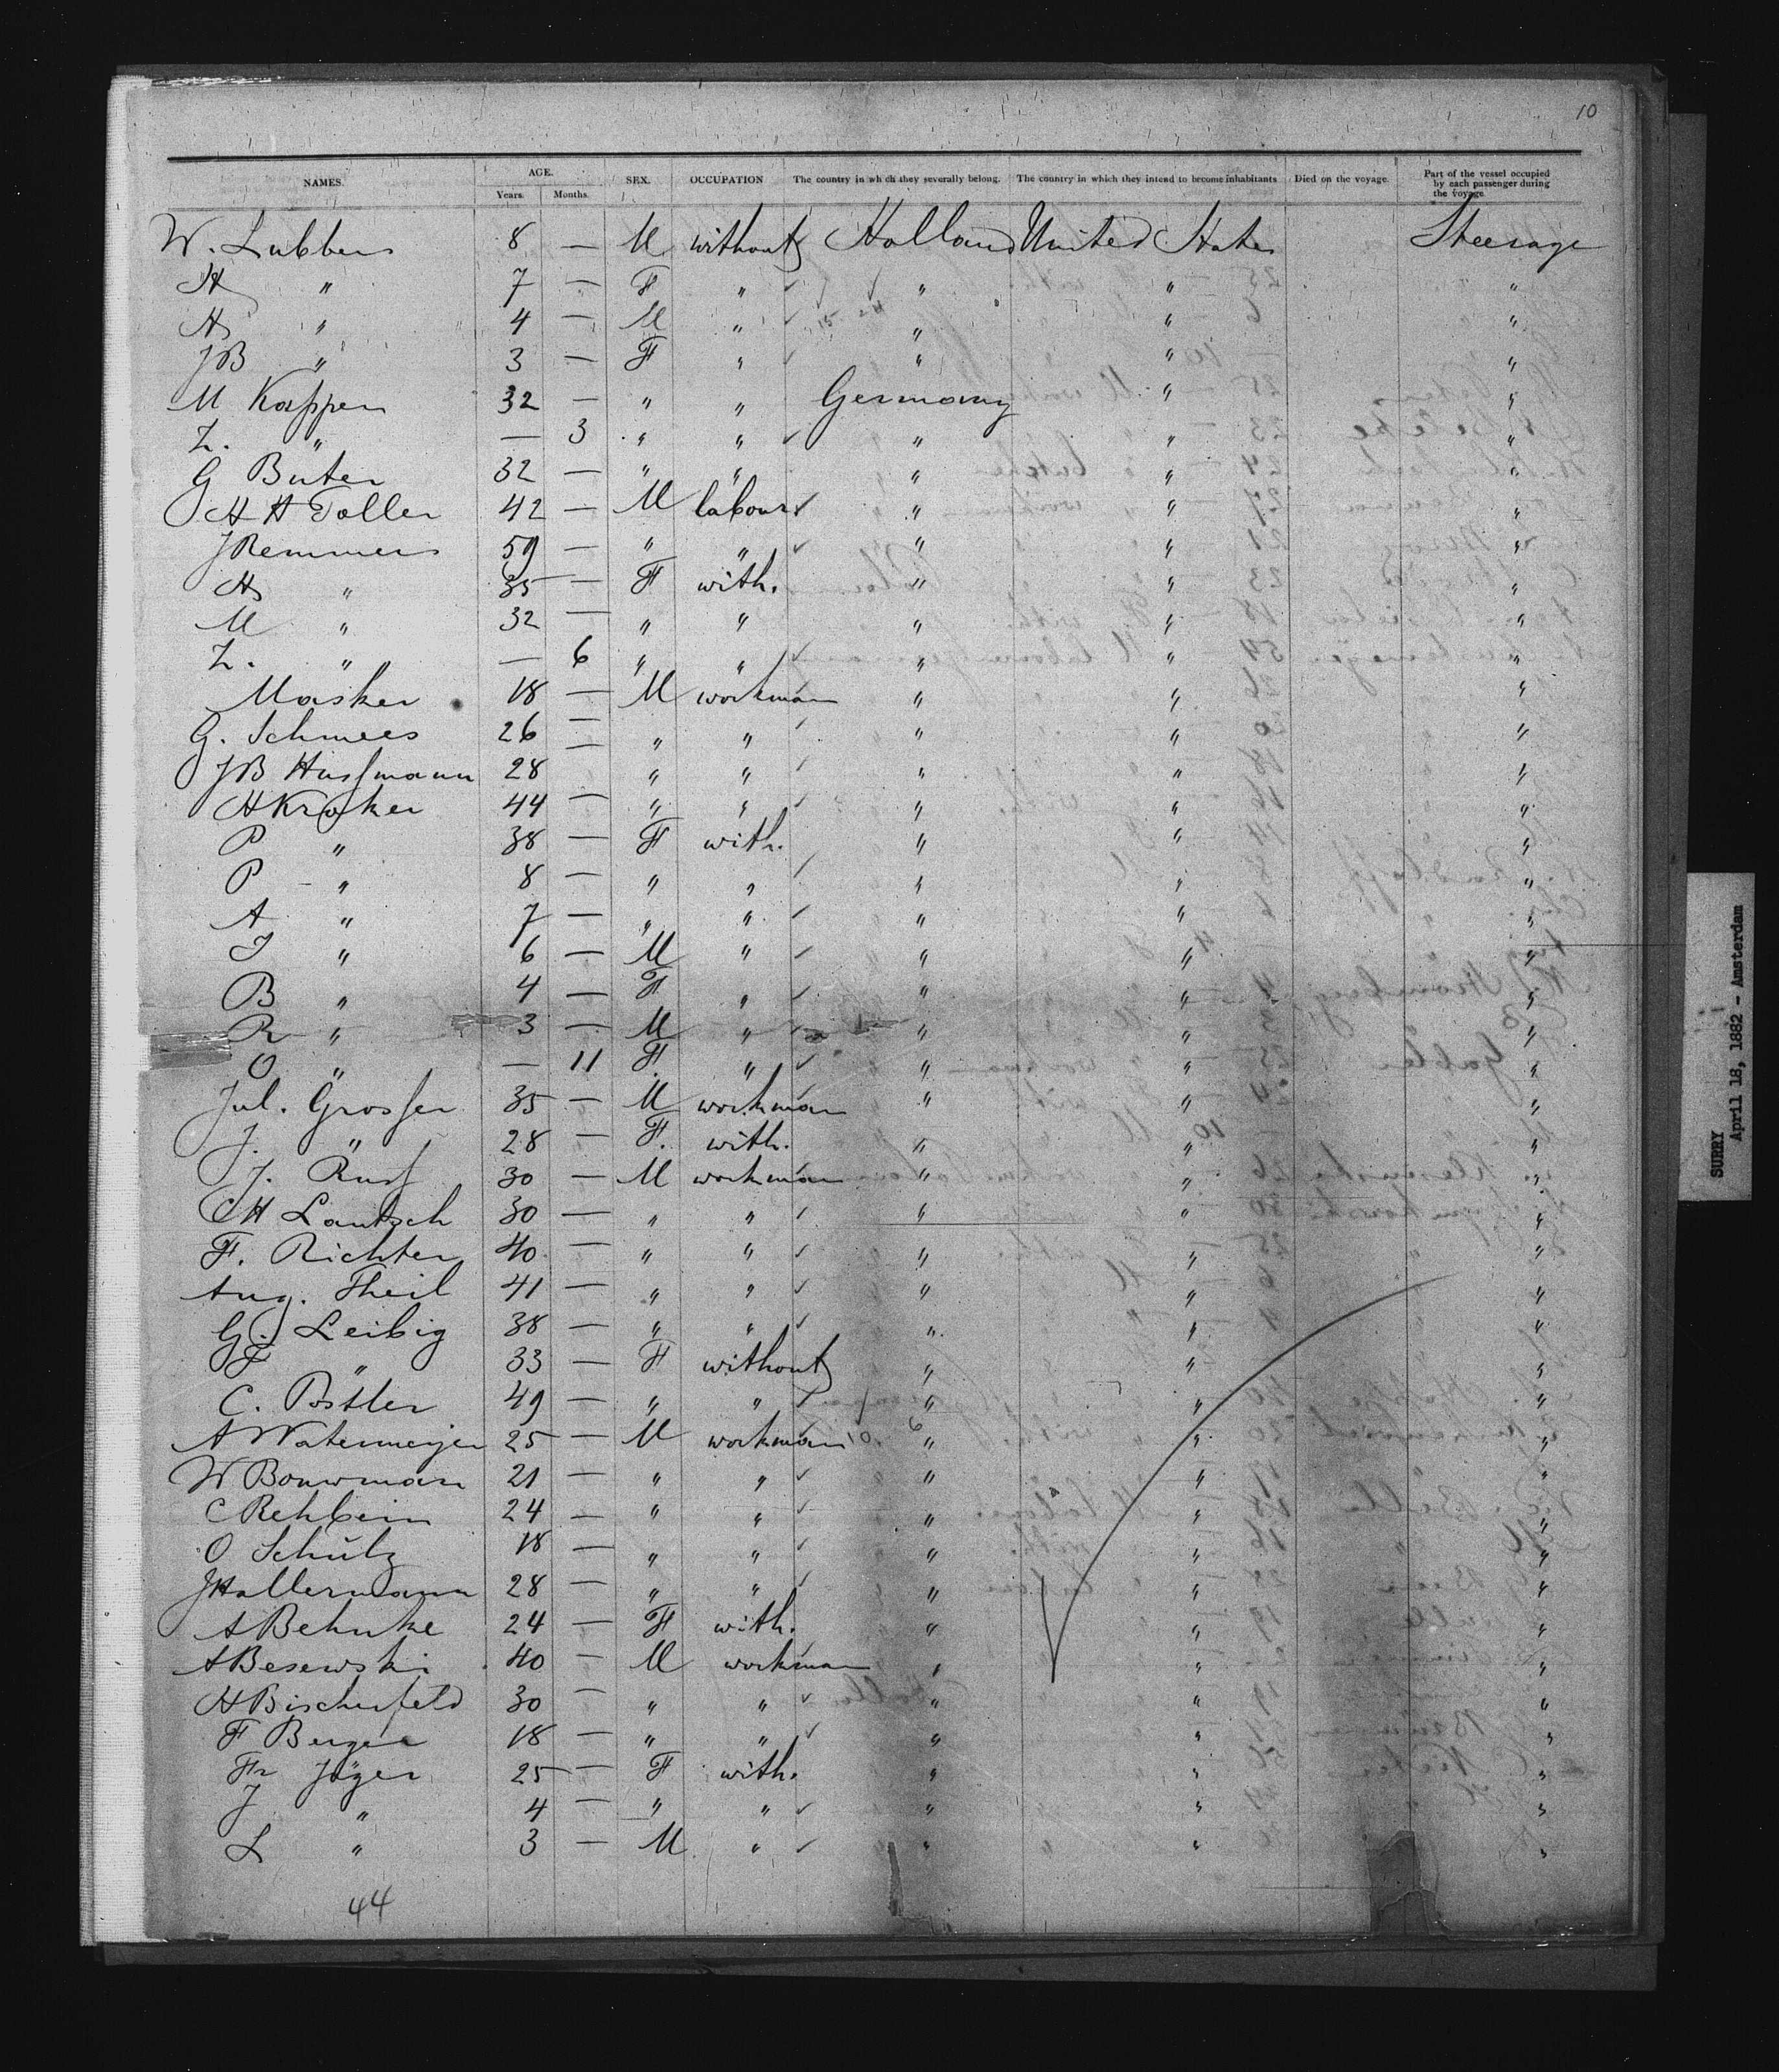 10
NAMES. AGE. SEX. OCCUPATION The country in which they severally belong. The country in which they intend to become inhabitants Died on the voyage. Part of the vessel occupied by each passenger during the voyage.
Years. Months.
W. Lubbers 8 — M without Holland United States Steerage
H " 7 — F " " " "
H " 4 — M " " " "
JB " 3 — F " " " "
M Kappen 32 — " " Germany " "
Z. " — 3 " " " " "
G Buter 32 — " " " " "
H H Toller 42 — M labour " " "
J Remmers 59 — " " " " "
H " 35 — F with. " " "
M " 32 — " " " " "
Z. " — 6 " " " " "
Masker 18 — M workman " " "
G. Schmees 26 — " " " " "
JB Hussmann 28 — " " " " "
H Kroker 44 — " " " " "
P " 38 — F with. " " "
P " 8 — " " " " "
A " 7 — " " " " "
J " 6 — M " " " "
B " 4 — F " " " "
R " 3 — M " " " "
O " — 11 F " " " "
Jul. Grosser 35 — M workman " " "
J. " 28 — F. with. " " "
J. Russ 30 — M workman " " "
CH Lantzsch 30 — " " " " "
F. Richter 40 — " " " " "
Aug. Theil 41 — " " " " "
G. Leibig 38 — " " " " "
F " 33 — F without " " "
C. Postler 49 — " " " " "
A Watermeyer 25 — M workman " " "
W Bouwman 21 — " " " " "
C Rehbein 24 — " " " " "
O Schulz 18 — " " " " "
J Hallermann 28 — " " " " "
A Behnke 24 — F with. " " "
A Besewski 40 — M workman " " "
H Bischerfeld 30 — " " " " "
F Berger 18 — " " " " "
Fr Jäger 25 — F with. " " "
J " 4 — " " " " "
L " 3 — M " " " "
44
SURRY
April 18, 1882 - Amsterdam